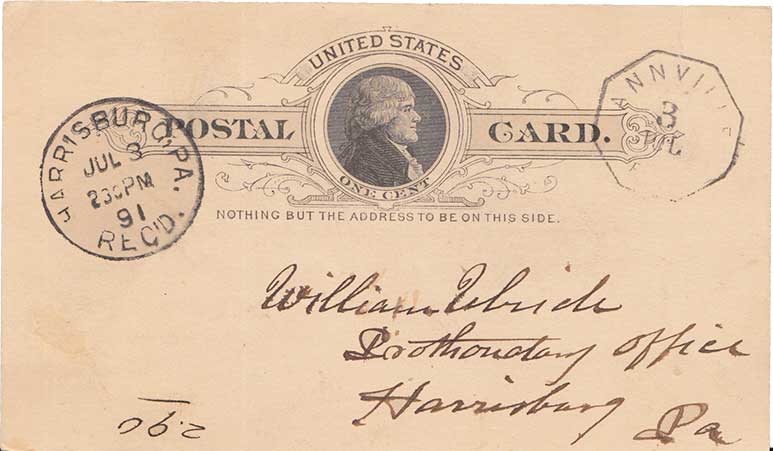 UNITED STATES
POSTAL CARD.
ONE CENT
NOTHING BUT THE ADDRESS TO BE ON THIS SIDE.
HARRISBURG, PA.
JUL 3
230PM
91
REC'D.
ANNVILLE
3
William
Prothondary Office
Harrisburg
Pa